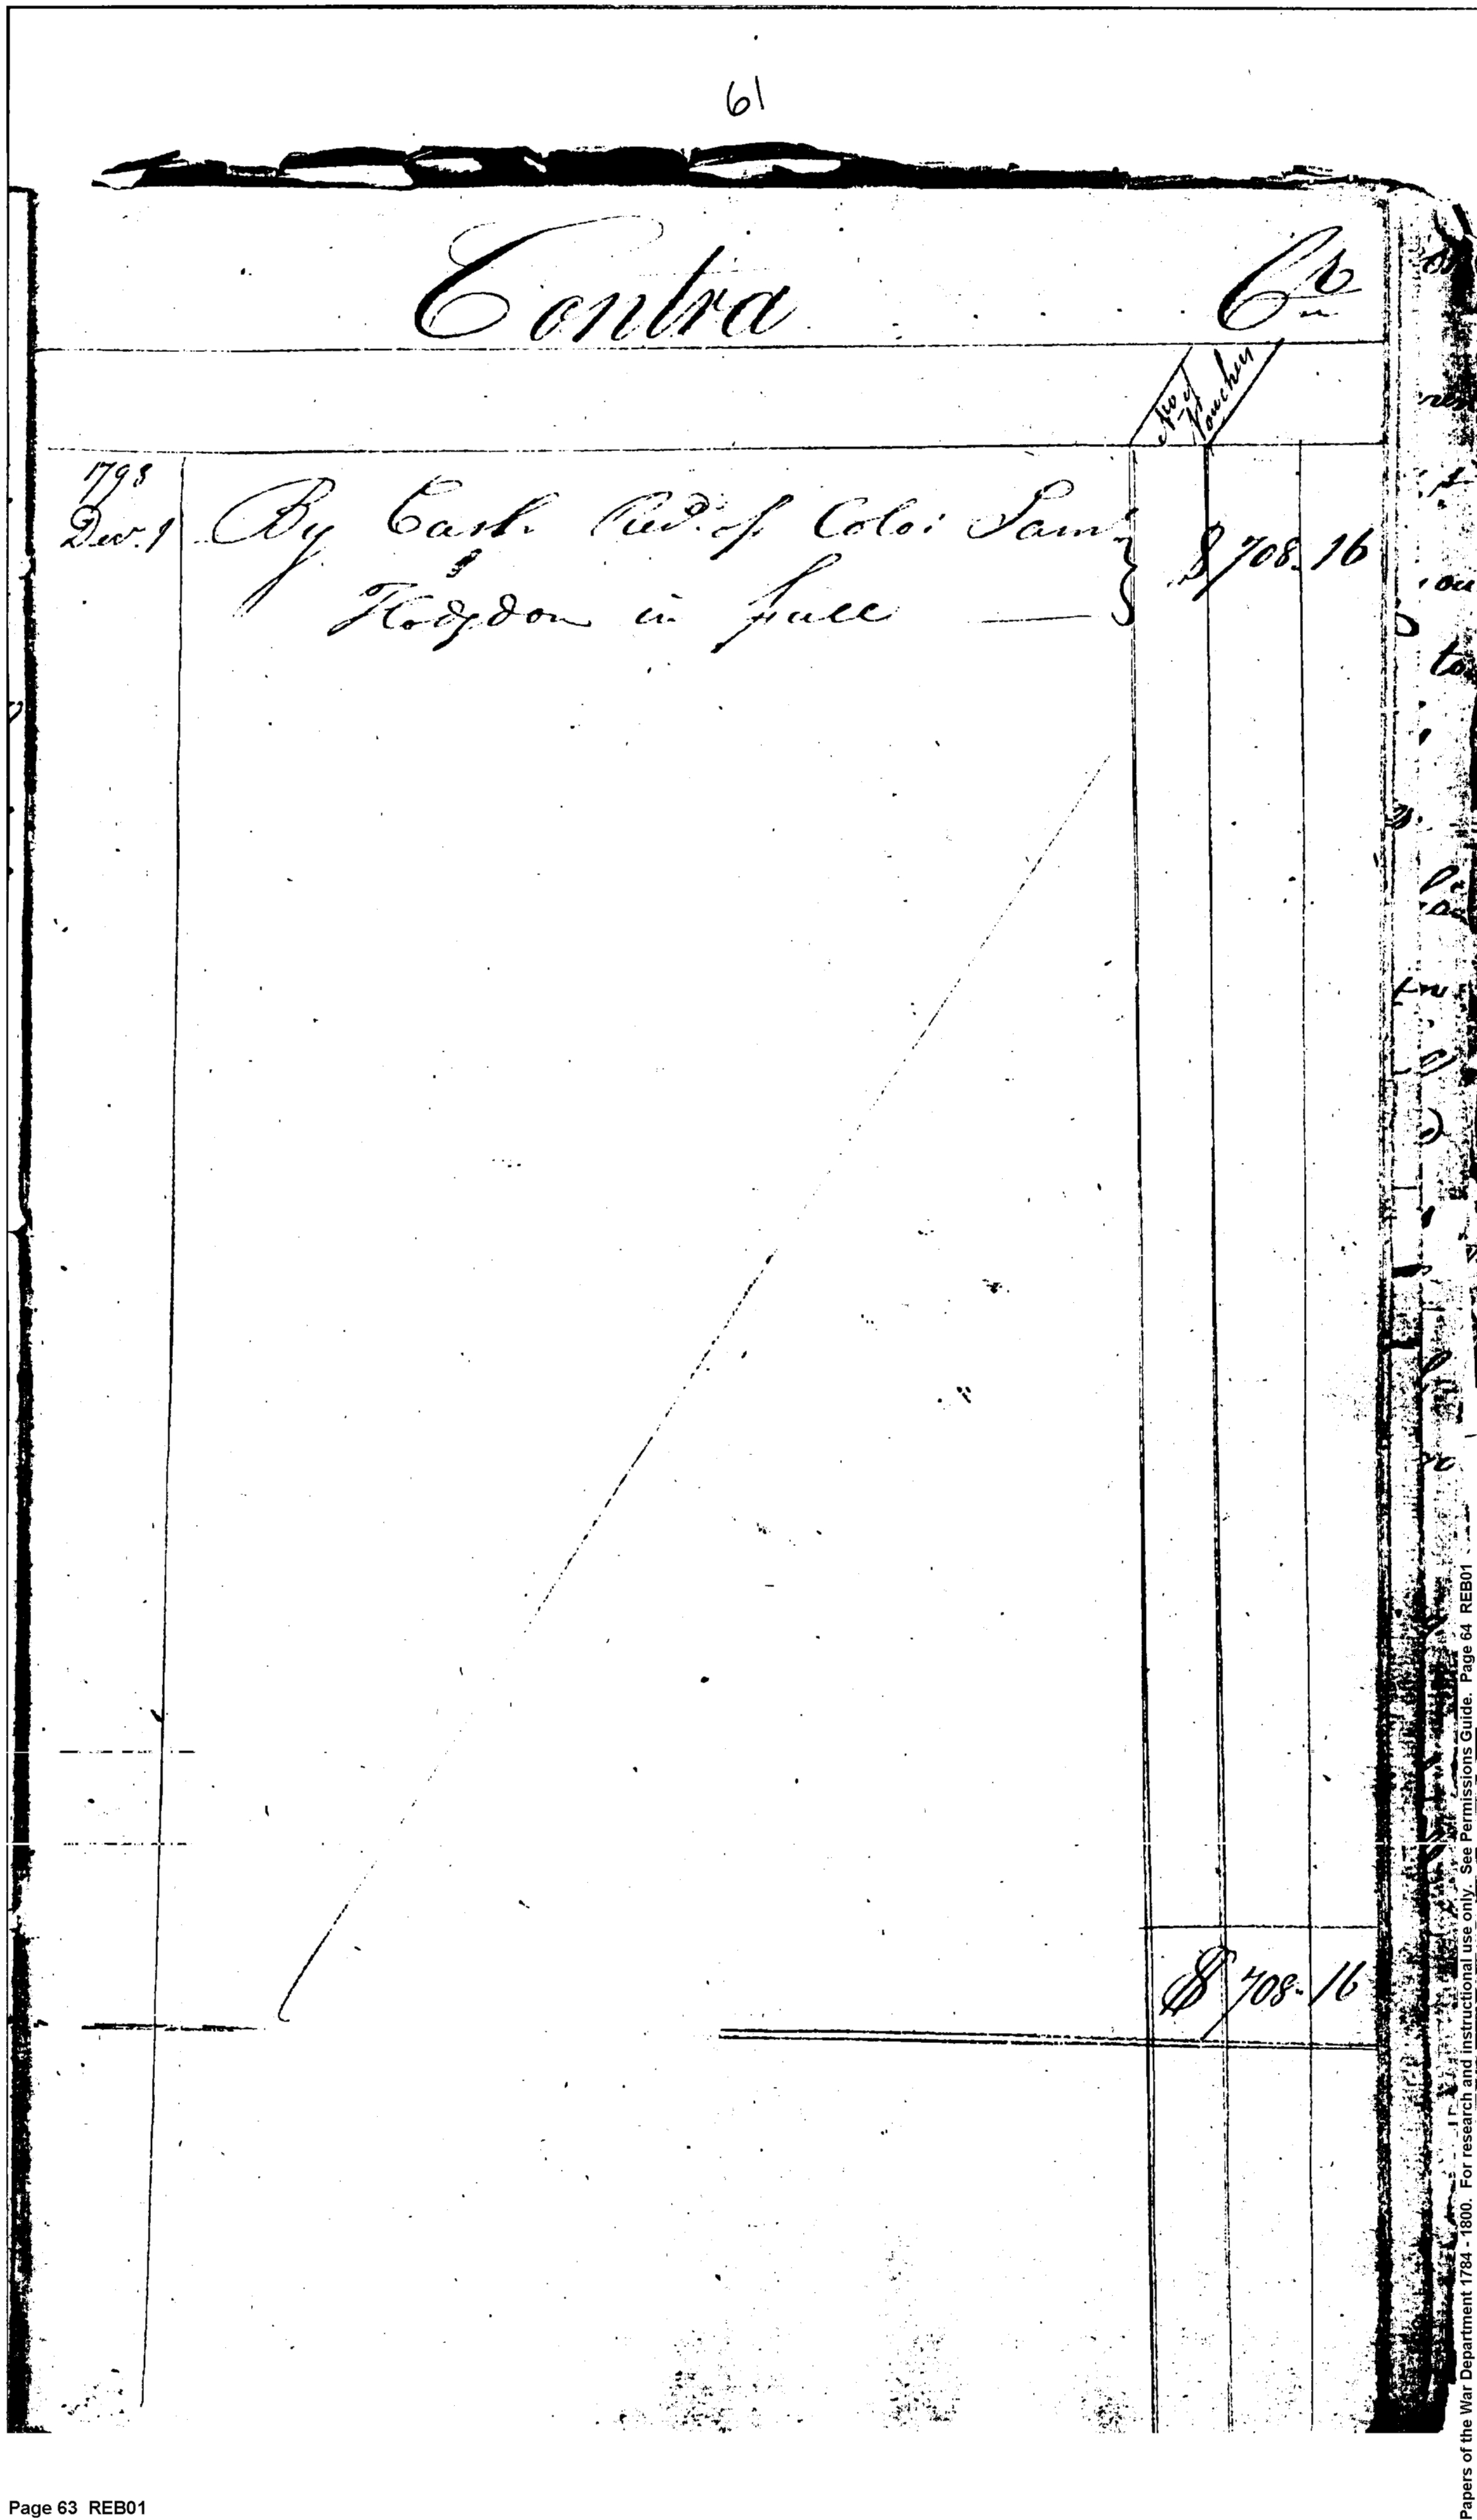 61
Contra . . . . . Cr
No of
Vouchers
1793
Dec. 1 By Cash Recd. of Colo: Saml
Hodgdon in full — } $ 708. 16
$ 708. 16
Page 63 REB01
Papers of the War Department 1784 - 1800. For research and instructional use only. See Permissions Guide. Page 64 REB01